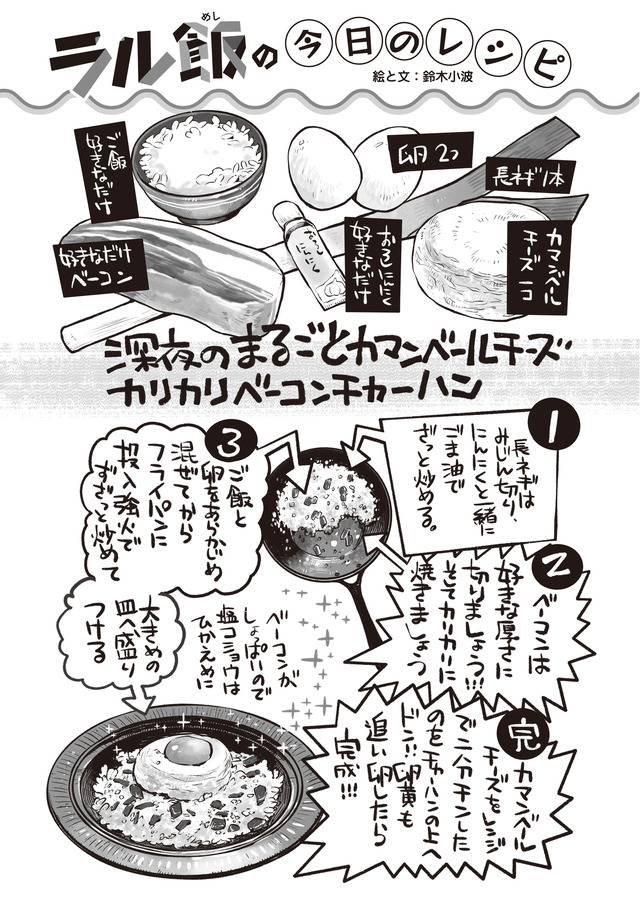 ラル飯の今日のレシピ
めし
絵と文：鈴木小波
ご飯
好きなだけ
卵2つ
長ネギ1本
好きなだけ
ベーコン
おろしにんにく
おろしにんにく
好きなだけ
カマンベール
チーズ一コ
深夜のまるごとカマンベールチーズ
カリカリベーコンチャーハン
1
長ネギは
みじん切り、
にんにくと一緒に
ごま油で
ざっと炒める。
2
ベーコンは
好きな厚さに
切りましょう!!!
そしてカリカリに
焼きましょう
3
ご飯と
卵をあらかじめ
混ぜてから
フライパンに
投入強火で
ずざっと炒めて
ベーコンが
しょっぱいので
塩コショウは
ひかえめに
大きめの
皿へ盛り
つける
完
カマンベール
チーズをレンジ
で二分チンした
のをチャーハンの上へ
ドン!!卵黄も
追い卵したら
完成!!!